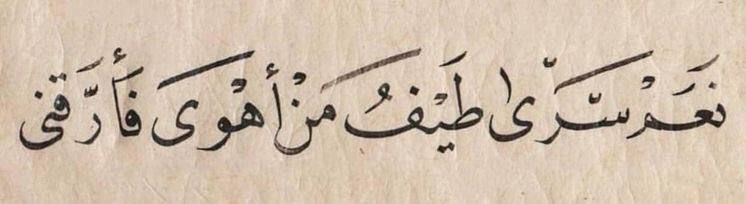 نَعَمْ سَرَى طَيْفُ مَنْ أَهْوَى فَأَرَّقَنِى